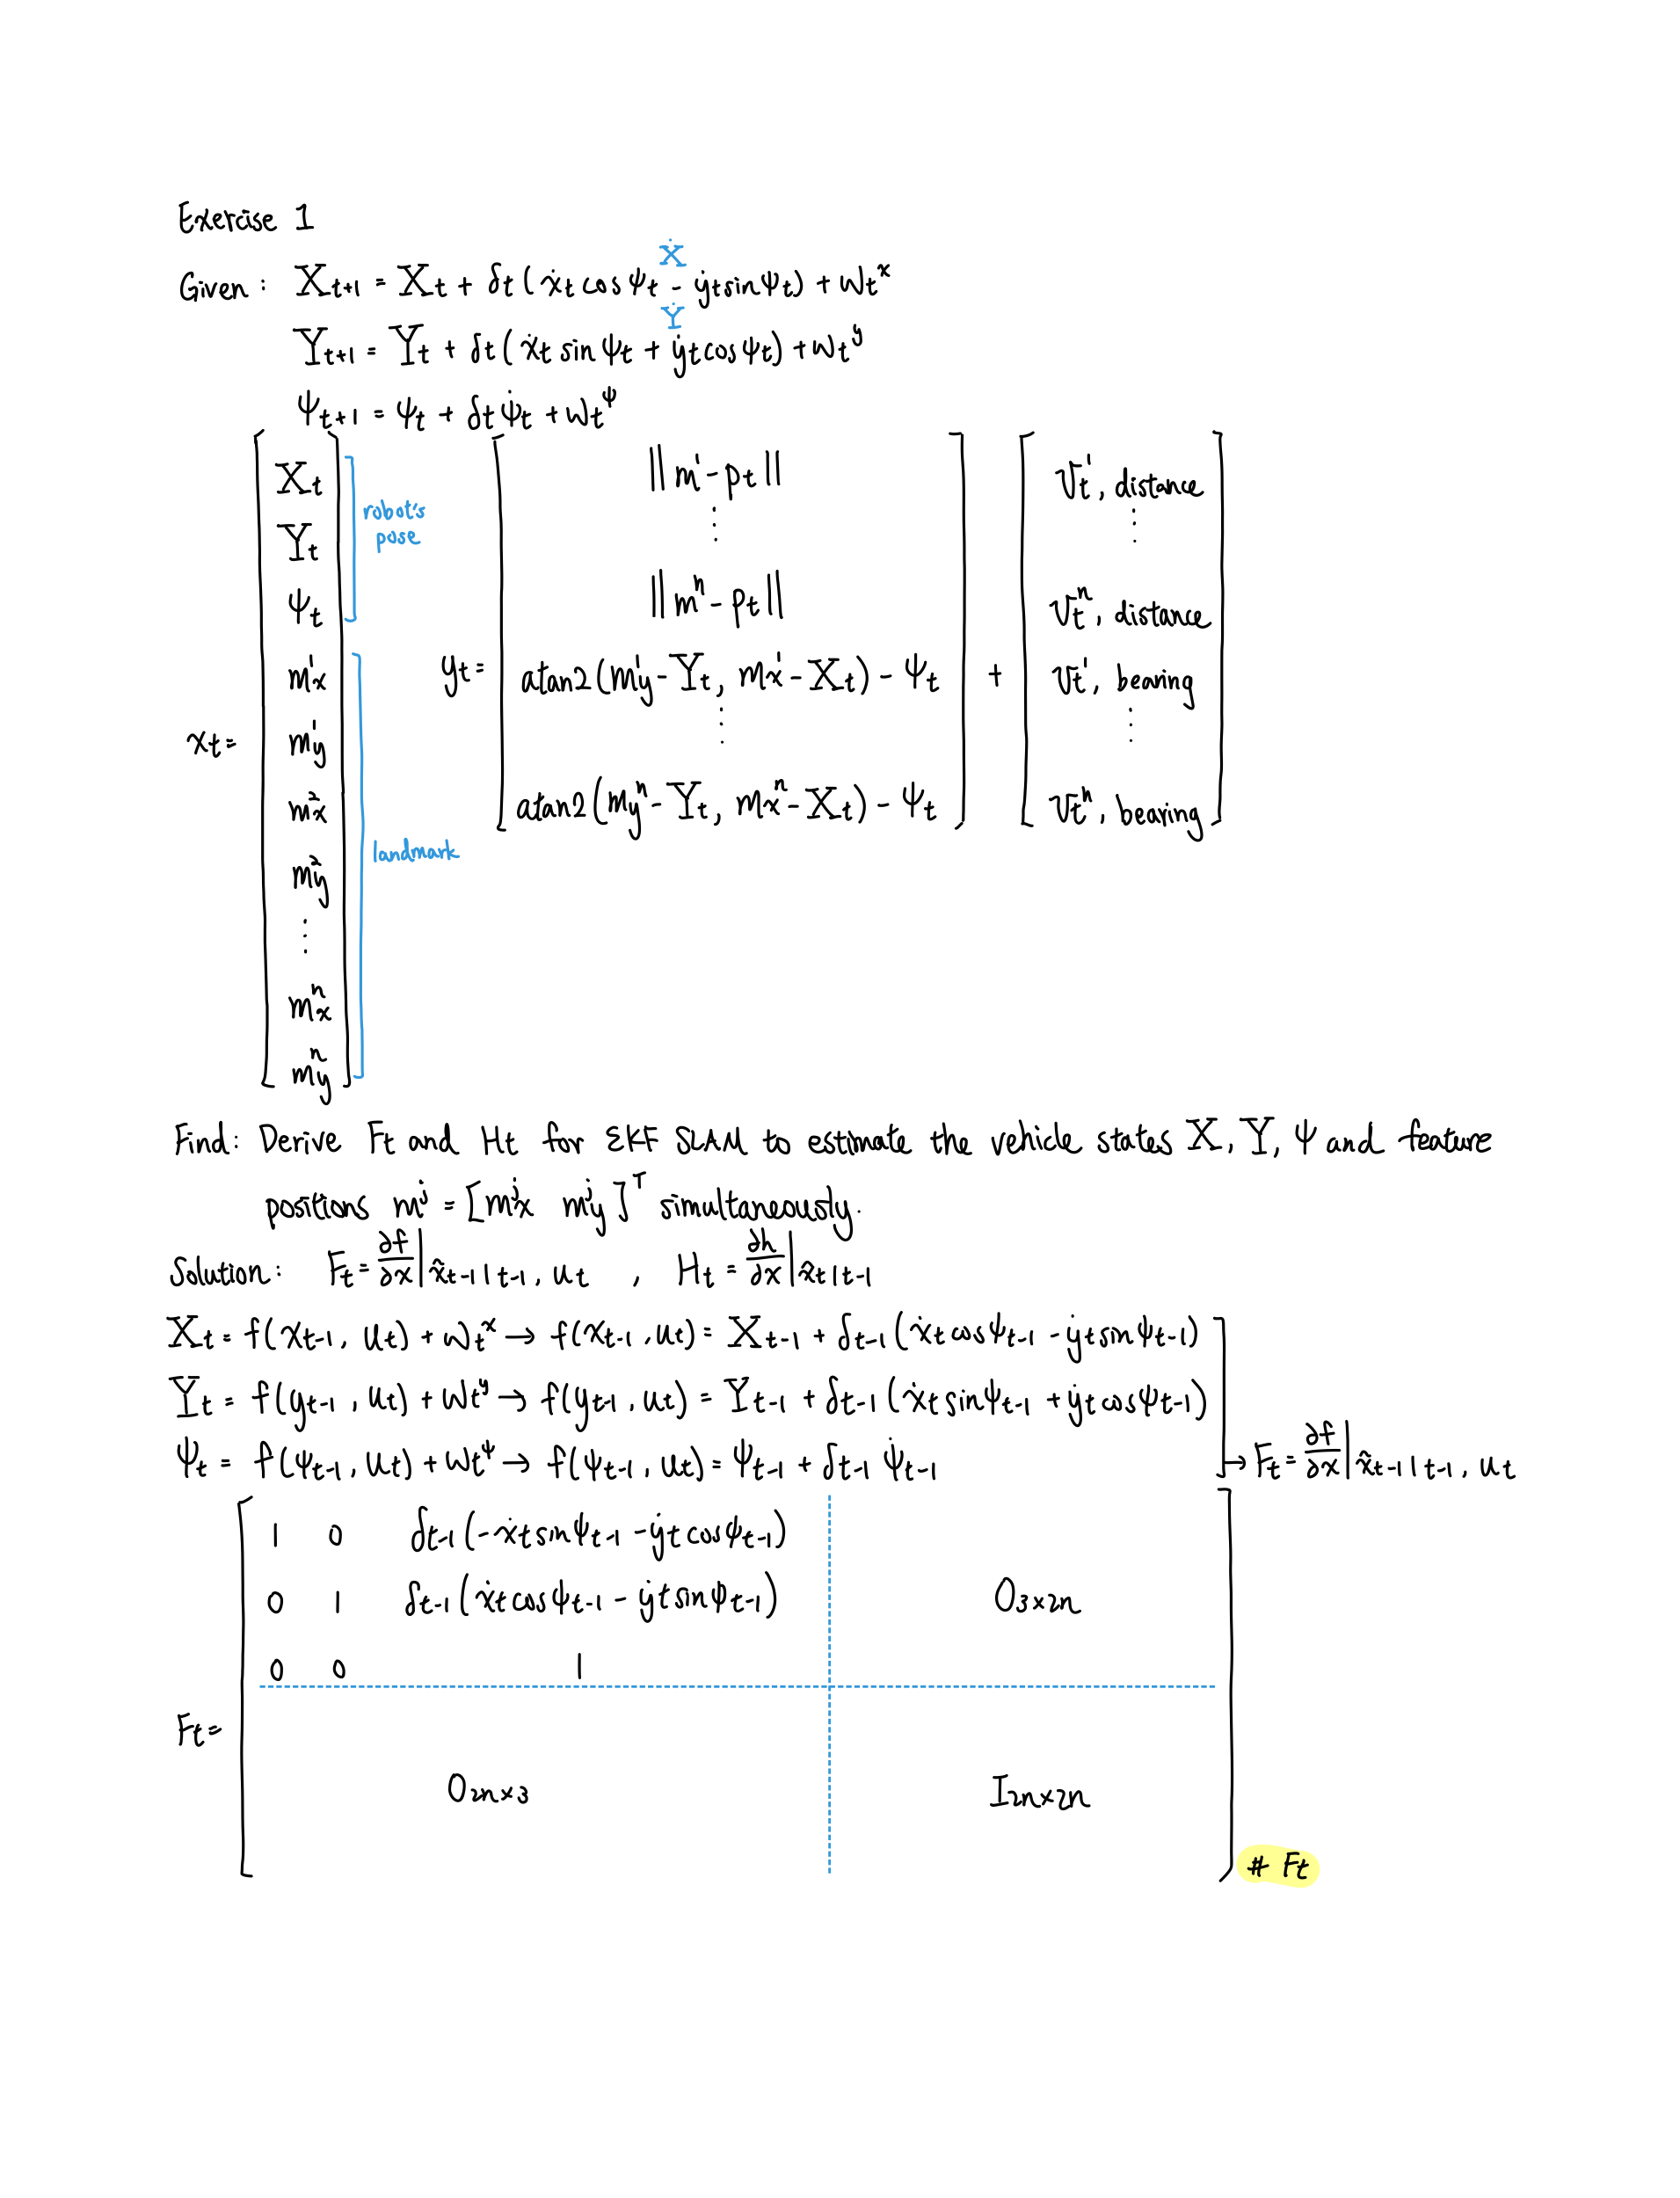 Exercise 1
Ẋ
Given: X_{t+1} = X_t + δt(ẋ_t cos ψ_t - ẏ_t sin ψ_t) + w_t^x
Ẏ
Y_{t+1} = Y_t + δt(ẋ_t sin ψ_t + ẏ_t cos ψ_t) + w_t^y
ψ_{t+1} = ψ_t + δt ψ̇_t + w_t^ψ
x_t = [ X_t
Y_t
ψ_t
m_x^1
m_y^1
m_x^2
m_y^2
⋮
m_x^n
m_y^n ]
robot's
pose
landmark
y_t = [ ||m^1 - p_t||
⋮
||m^n - p_t||
atan2(m_y^1 - Y_t, m_x^1 - X_t) - ψ_t
⋮
atan2(m_y^n - Y_t, m_x^n - X_t) - ψ_t ]
+ [ v_t^1, distance
⋮
v_t^n, distance
v_t^1, bearing
⋮
v_t^n, bearing ]
Find: Derive F_t and H_t for EKF SLAM to estimate the vehicle states X, Y, ψ and feature
positions m^j = [m_x^j m_y^j]^T simultaneously.
Solution: F_t = ∂f/∂x | x̂_{t-1|t-1}, u_t , H_t = ∂h/∂x | x̂_{t|t-1}
X_t = f(x_{t-1}, u_t) + w_t^x → f(x_{t-1}, u_t) = X_{t-1} + δ_{t-1}(ẋ_t cos ψ_{t-1} - ẏ_t sin ψ_{t-1})
Y_t = f(y_{t-1}, u_t) + w_t^y → f(y_{t-1}, u_t) = Y_{t-1} + δ_{t-1}(ẋ_t sin ψ_{t-1} + ẏ_t cos ψ_{t-1})
ψ_t = f(ψ_{t-1}, u_t) + w_t^ψ → f(ψ_{t-1}, u_t) = ψ_{t-1} + δ_{t-1} ψ̇_{t-1} → F_t = ∂f/∂x | x̂_{t-1|t-1}, u_t
F_t = [ 1 0 δ_{t-1}(-ẋ_t sin ψ_{t-1} - ẏ_t cos ψ_{t-1})
0 1 δ_{t-1}(ẋ_t cos ψ_{t-1} - ẏ_t sin ψ_{t-1}) 0_{3×2n}
0 0 1
0_{2n×3} I_{2n×2n} ]
# F_t